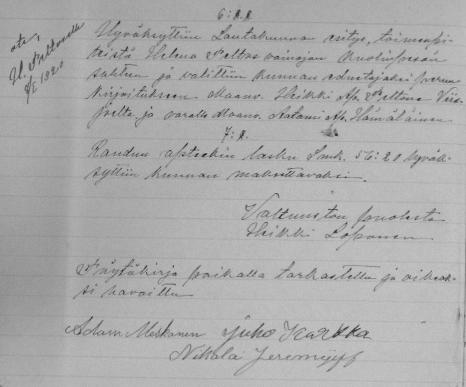 6:§.
Hyväksyttiin Lautakunnan esitys, toimenpi-
teistä Helena Peltos vainajan kuolinpesän
suhteen ja valittiin kunnan edustajaksi perun
kirjoitukseen Maanv. Heikki Ap. Peltone Viis
joelta ja varalle Maanv. Aatami Ap. Hämäläinen
7:§.
Raudun apteekin lasku Smk. 56:20 hyväk-
syttiin kunnan maksettavaksi.
Valtuuston puolesta
Heikki Loponen
Pöytäkirja paikalla tarkastettu ja oikeak-
si havaittu
Adam Meskanen Juho Karkka
Nikolai Jeremejeff
ote,
H. Peltoselle
1920